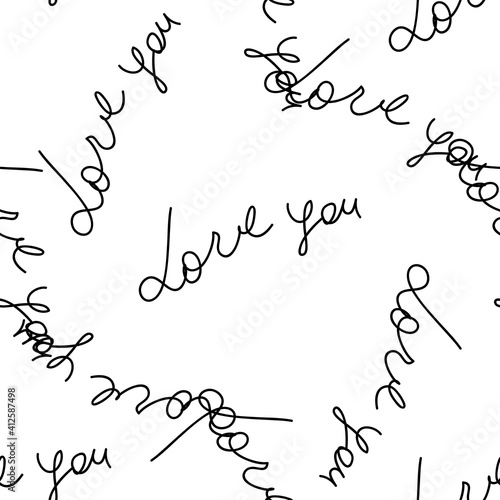 Love you
Love you
Love you
Love you
Love you
Love you
Adobe Stock | #412587498